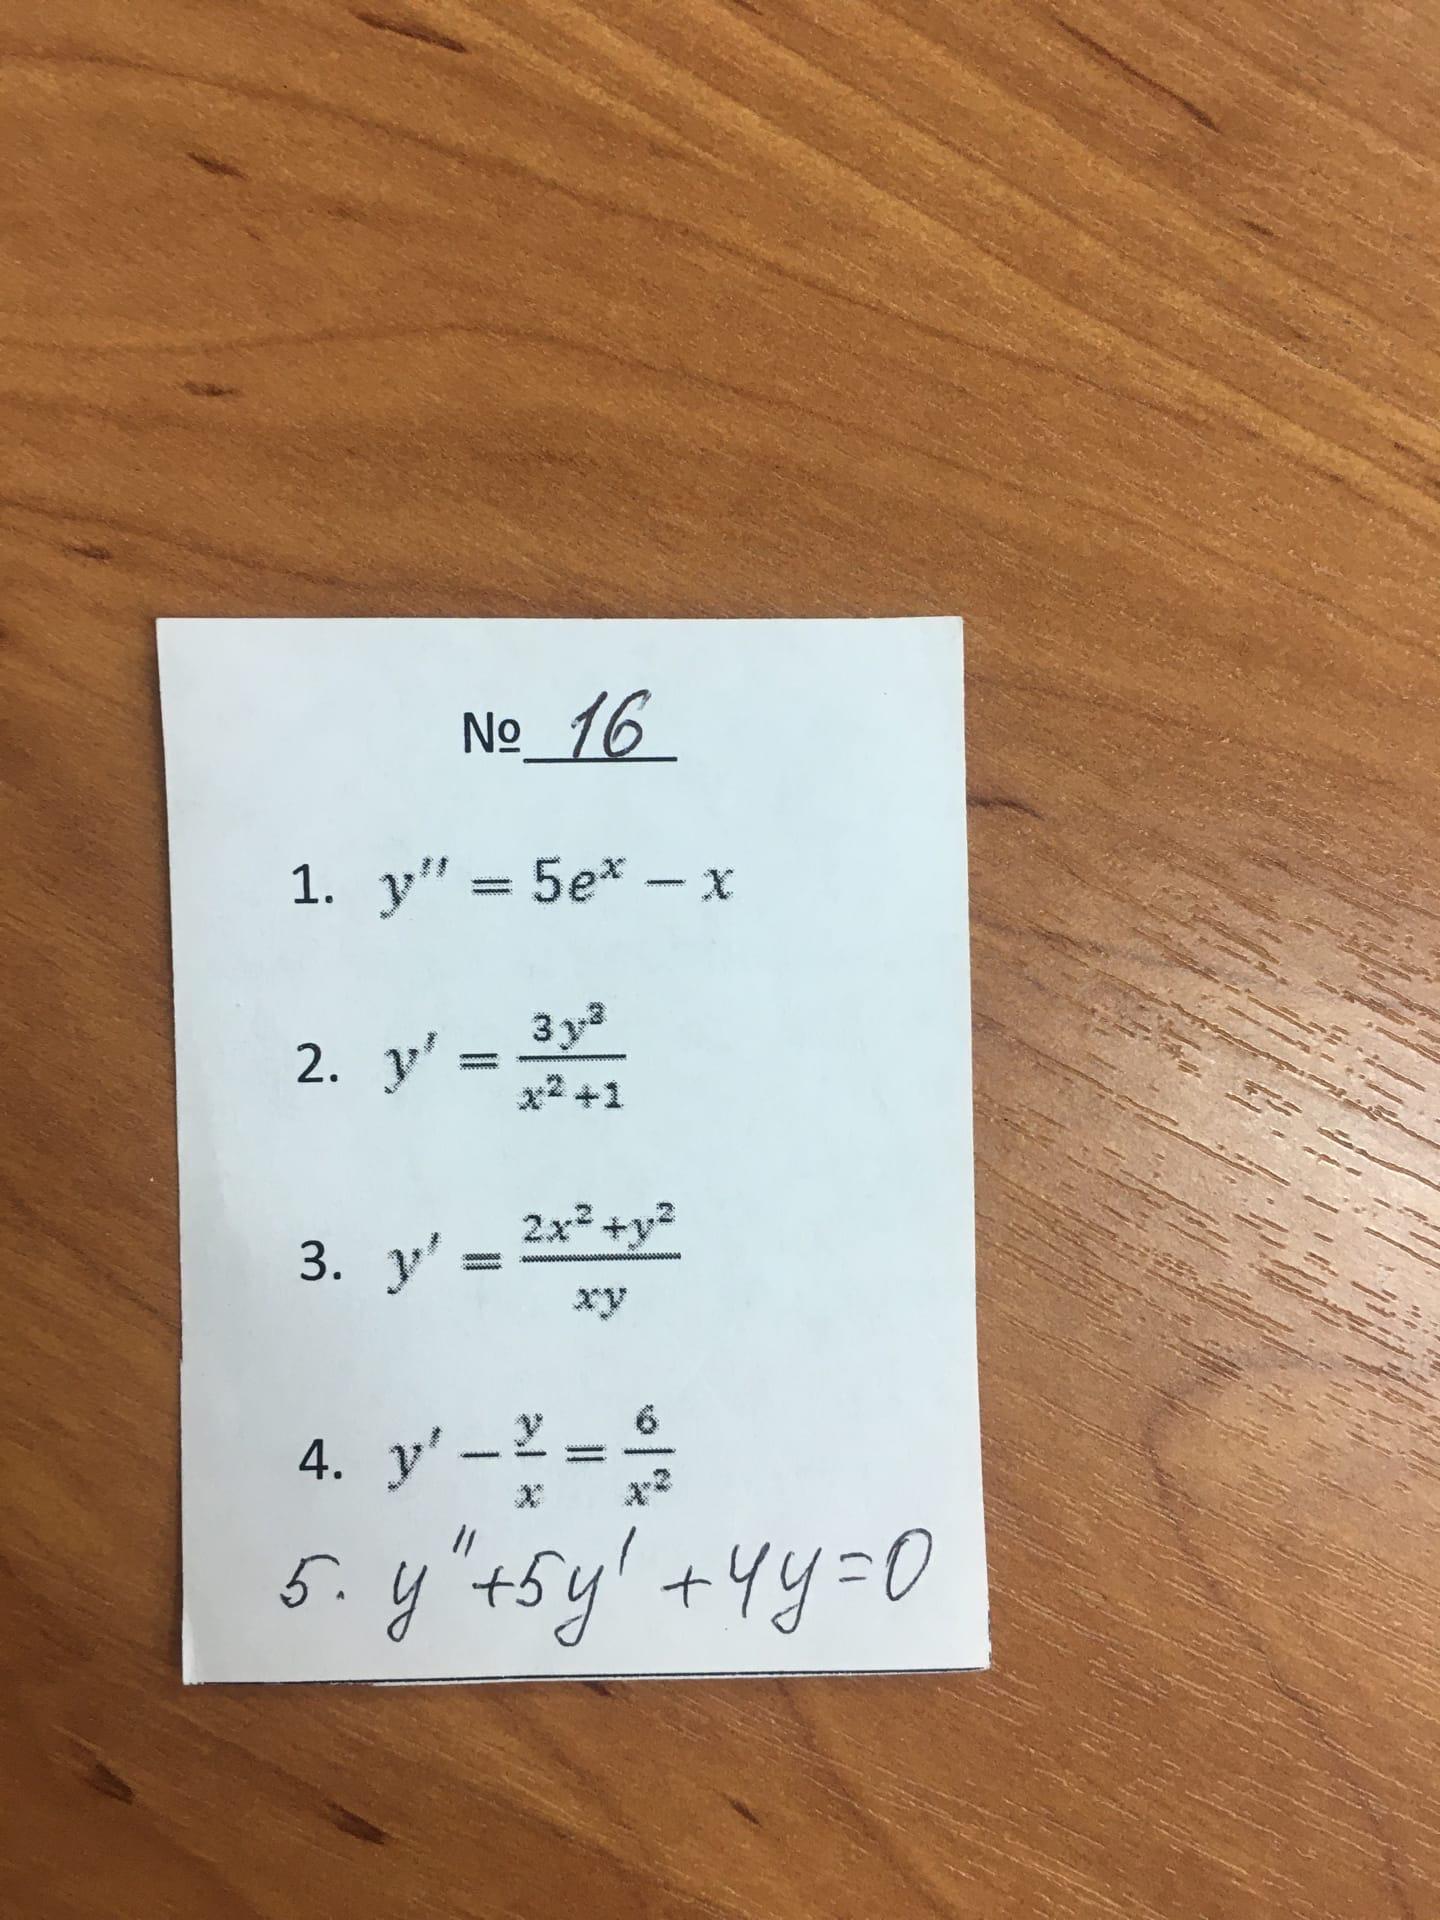 № 16
1. y'' = 5eˣ − x
2. y' = 3y³/(x²+1)
3. y' = (2x²+y²)/(xy)
4. y' − y/x = 6/x²
5. y''+5y' +4y=0